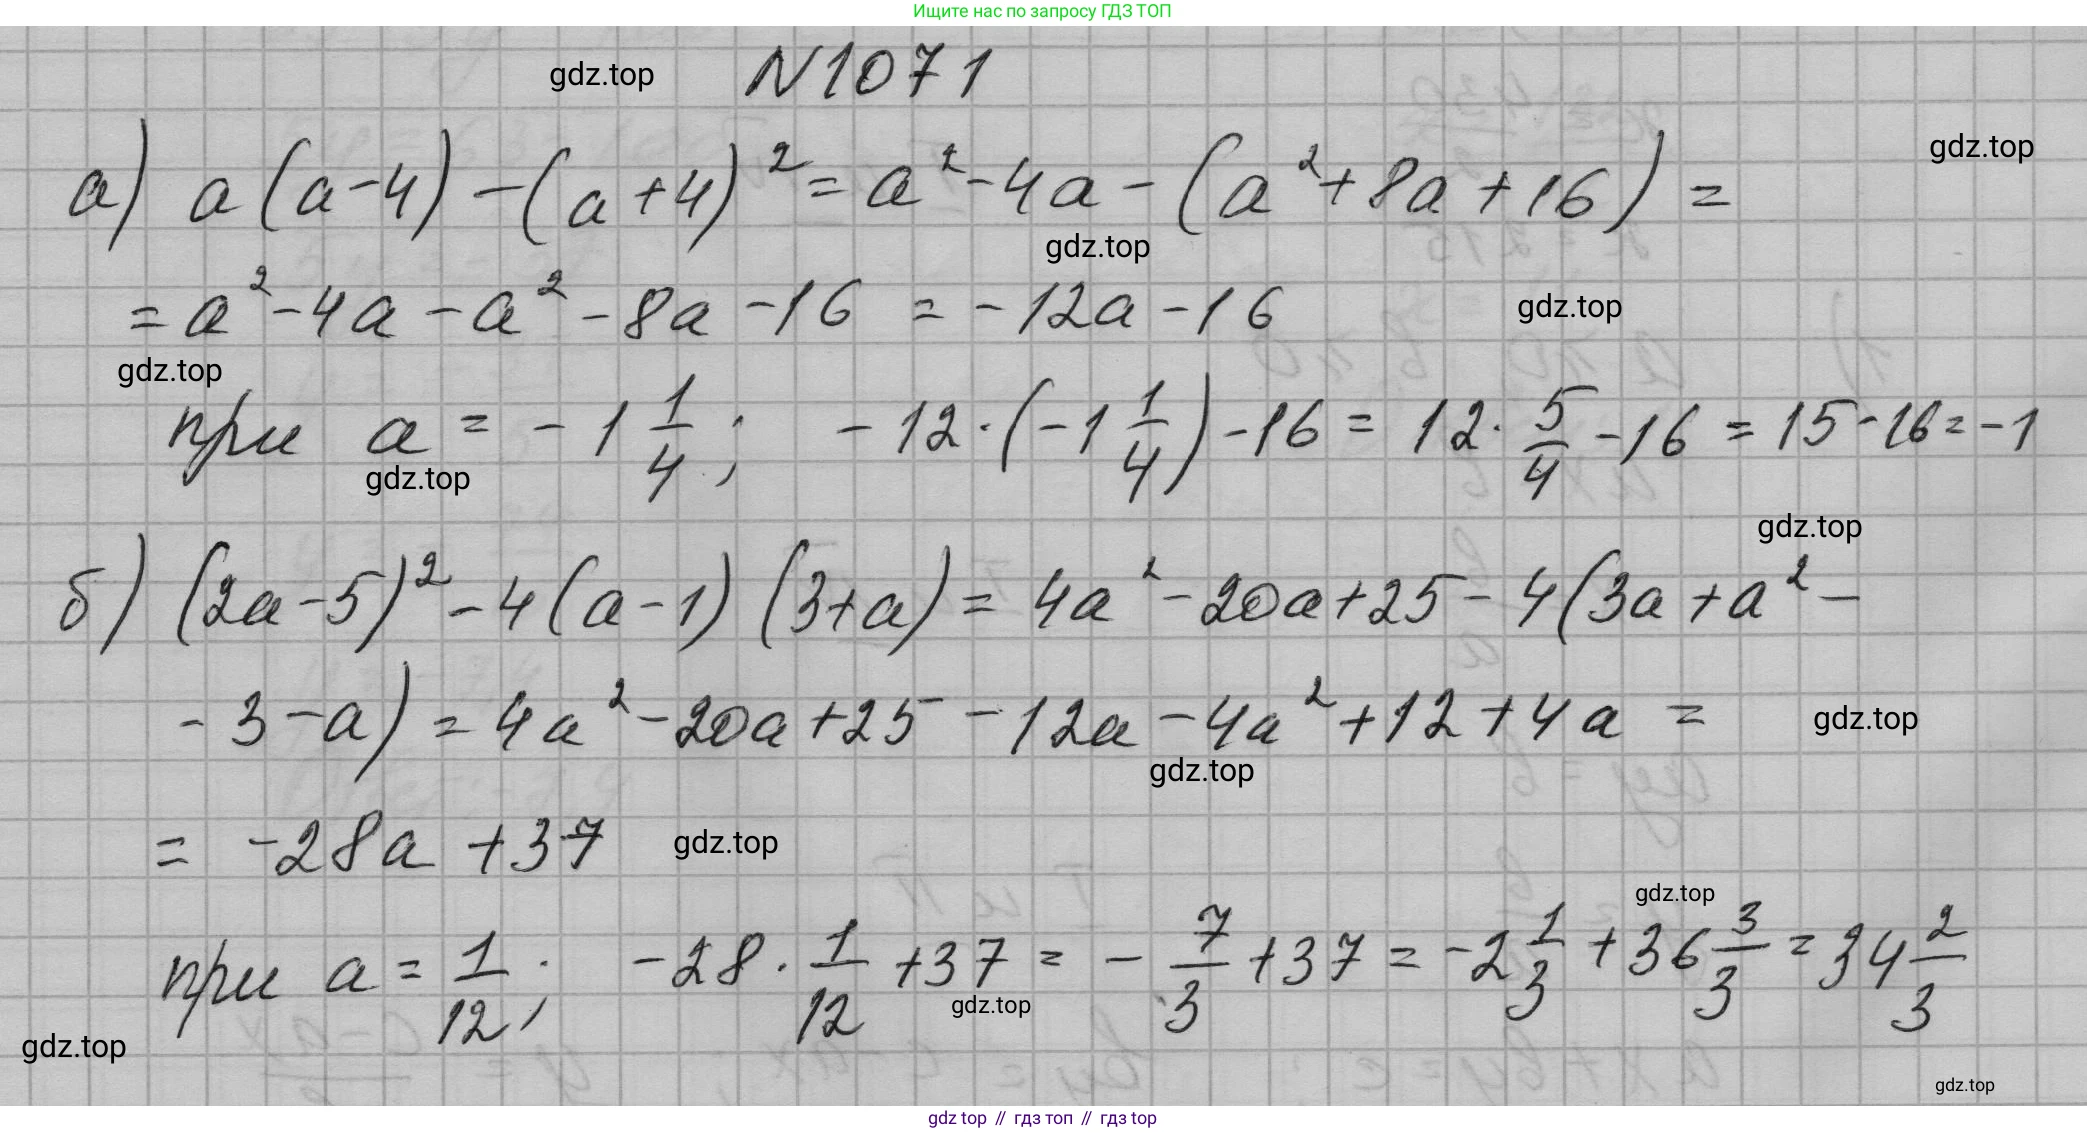 Ищите нас по запросу ГДЗ ТОП
gdz.top
N1071
gdz.top
а) a(a-4)-(a+4)²=a²-4a-(a²+8a+16)=
gdz.top
=a²-4a-a²-8a-16=-12a-16
gdz.top
gdz.top
при a=-1 1/4; -12·(-1 1/4)-16=12·5/4-16=15-16=-1
gdz.top
gdz.top
б) (2a-5)²-4(a-1)(3+a)=4a²-20a+25-4(3a+a²-
-3-a)=4a²-20a+25-12a-4a²+12+4a=
gdz.top
gdz.top
=-28a+37
gdz.top
gdz.top
при a=1/12; -28·1/12+37=-7/3+37=-2 1/3+36 3/3=34 2/3
gdz.top
gdz.top
gdz.top
gdz top // гдз топ // gdz top